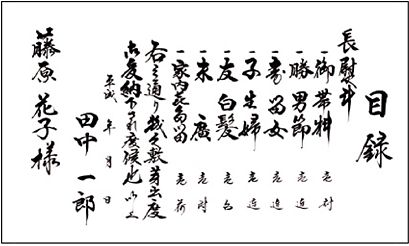 目録
長熨斗
一 御帯料 壱封
一 勝男節 壱連
一 寿留女 壱連
一 子生婦 壱連
一 友白髪 壱台
一 末廣 壱対
一 家内喜多留 壱荷
右之通り幾久敷芽出度
御受納下され度候也 以上
平成 年 月 日
田中 一郎
藤原 花子様